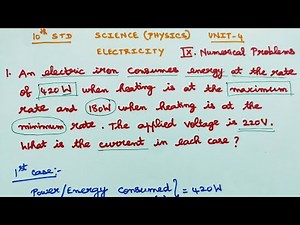 10th STD SCIENCE (PHYSICS) UNIT-4
ELECTRICITY IX. Numerical Problems
1. An electric iron consumes energy at the rate
of 420W when heating is at the maximum
rate and 180W when heating is at the
minimum rate. The applied voltage is 220V.
What is the current in each case?
1st case:-
Power/Energy consumed } = 420W